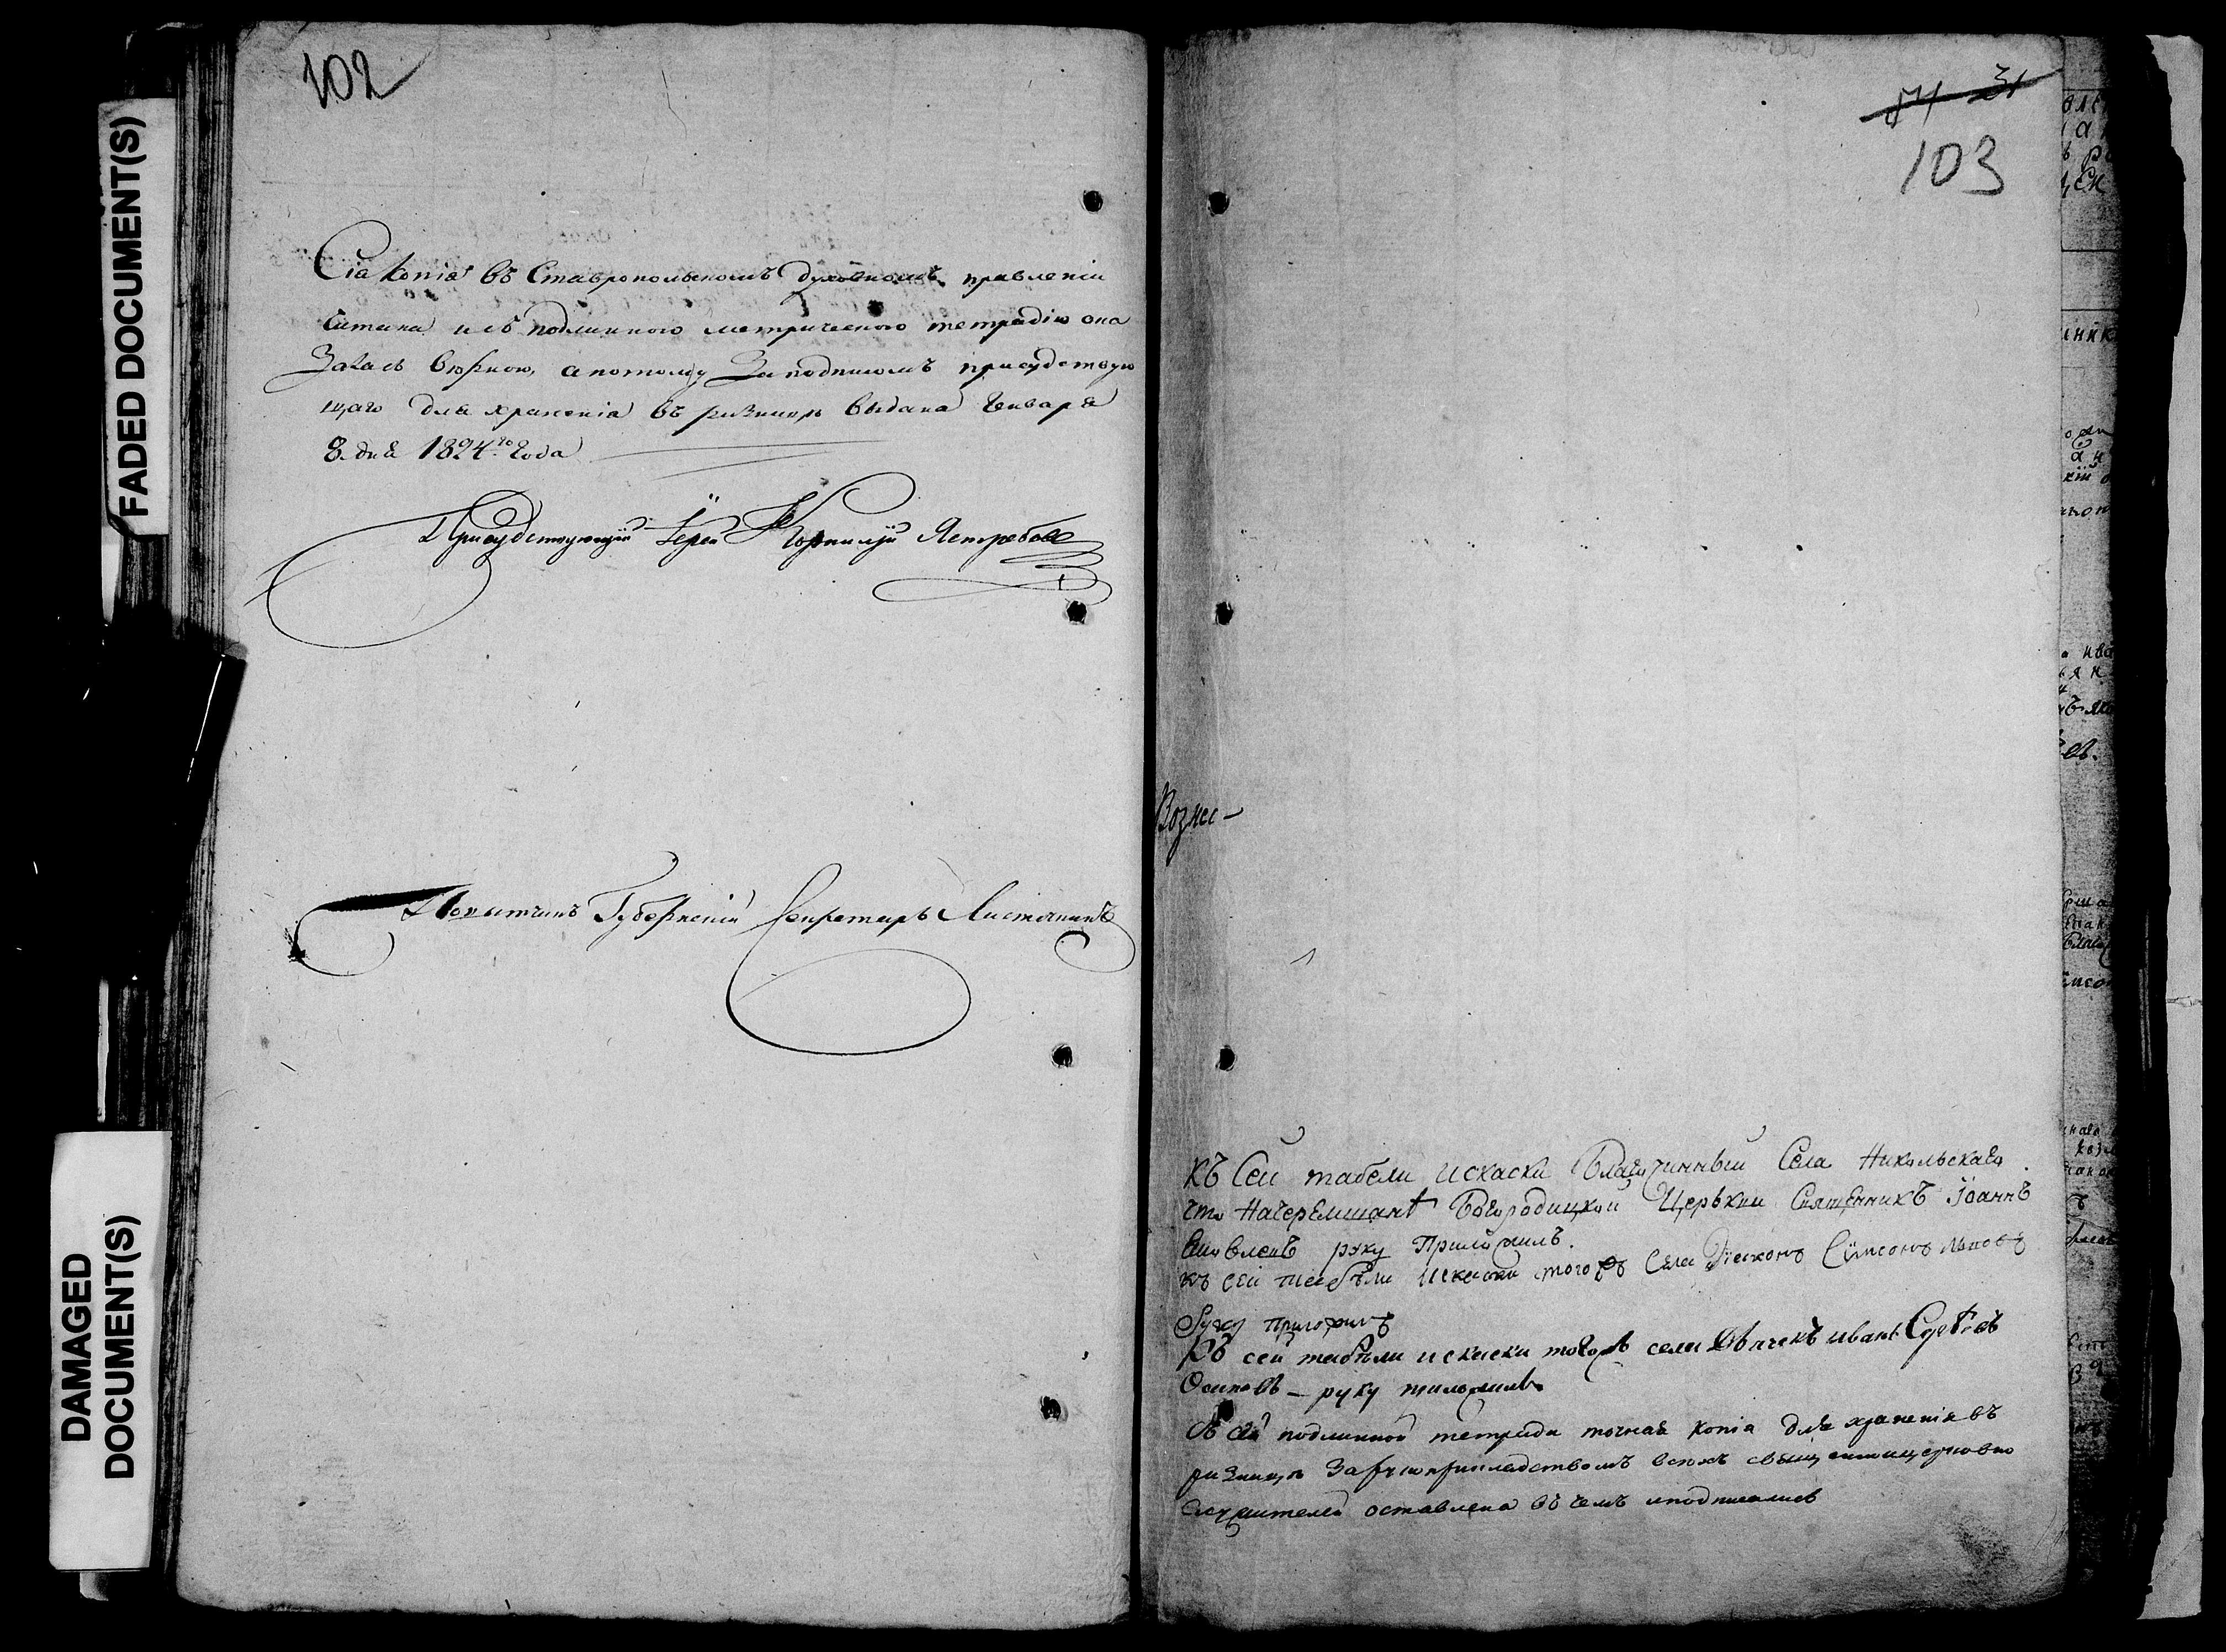 FADED DOCUMENT(S)
DAMAGED
DOCUMENT(S)
102
Сіа копіа въ Ставропольскомъ духовномъ правленіи
Читана и съ подлинного метрического тетрадію ока
Залась вѣрною, а потому За подписомъ присудствую
щаго для храненіа въ ризницѣ выдана Генваря
8. дня 1824.го Года
Присудствующій Іерей Корнилій Ястребовъ
Повытчикъ Губернскій Секретарь Листочкинъ
31
103
Вознес-
Къ сей табели искаски Благочинный Села Никольскаго
что Начеремшанѣ Богородицкой Церькви Священникъ Іоаннъ
руку Приложилъ.
къ сей табѣли искаски тогожъ Села Діаконъ Сѵмеонъ
Руку приложилъ
Къ сей табѣли искаски тогожъ села Дьячекъ иванъ Сергѣевъ
Осиповъ - руку приложилъ
Съ сей подлинной тетради точная копіа для храненія въ
ризницѣ За рукоприкладствомъ всѣхъ священноцерковно
служителей оставлена въ чемъ иподписались